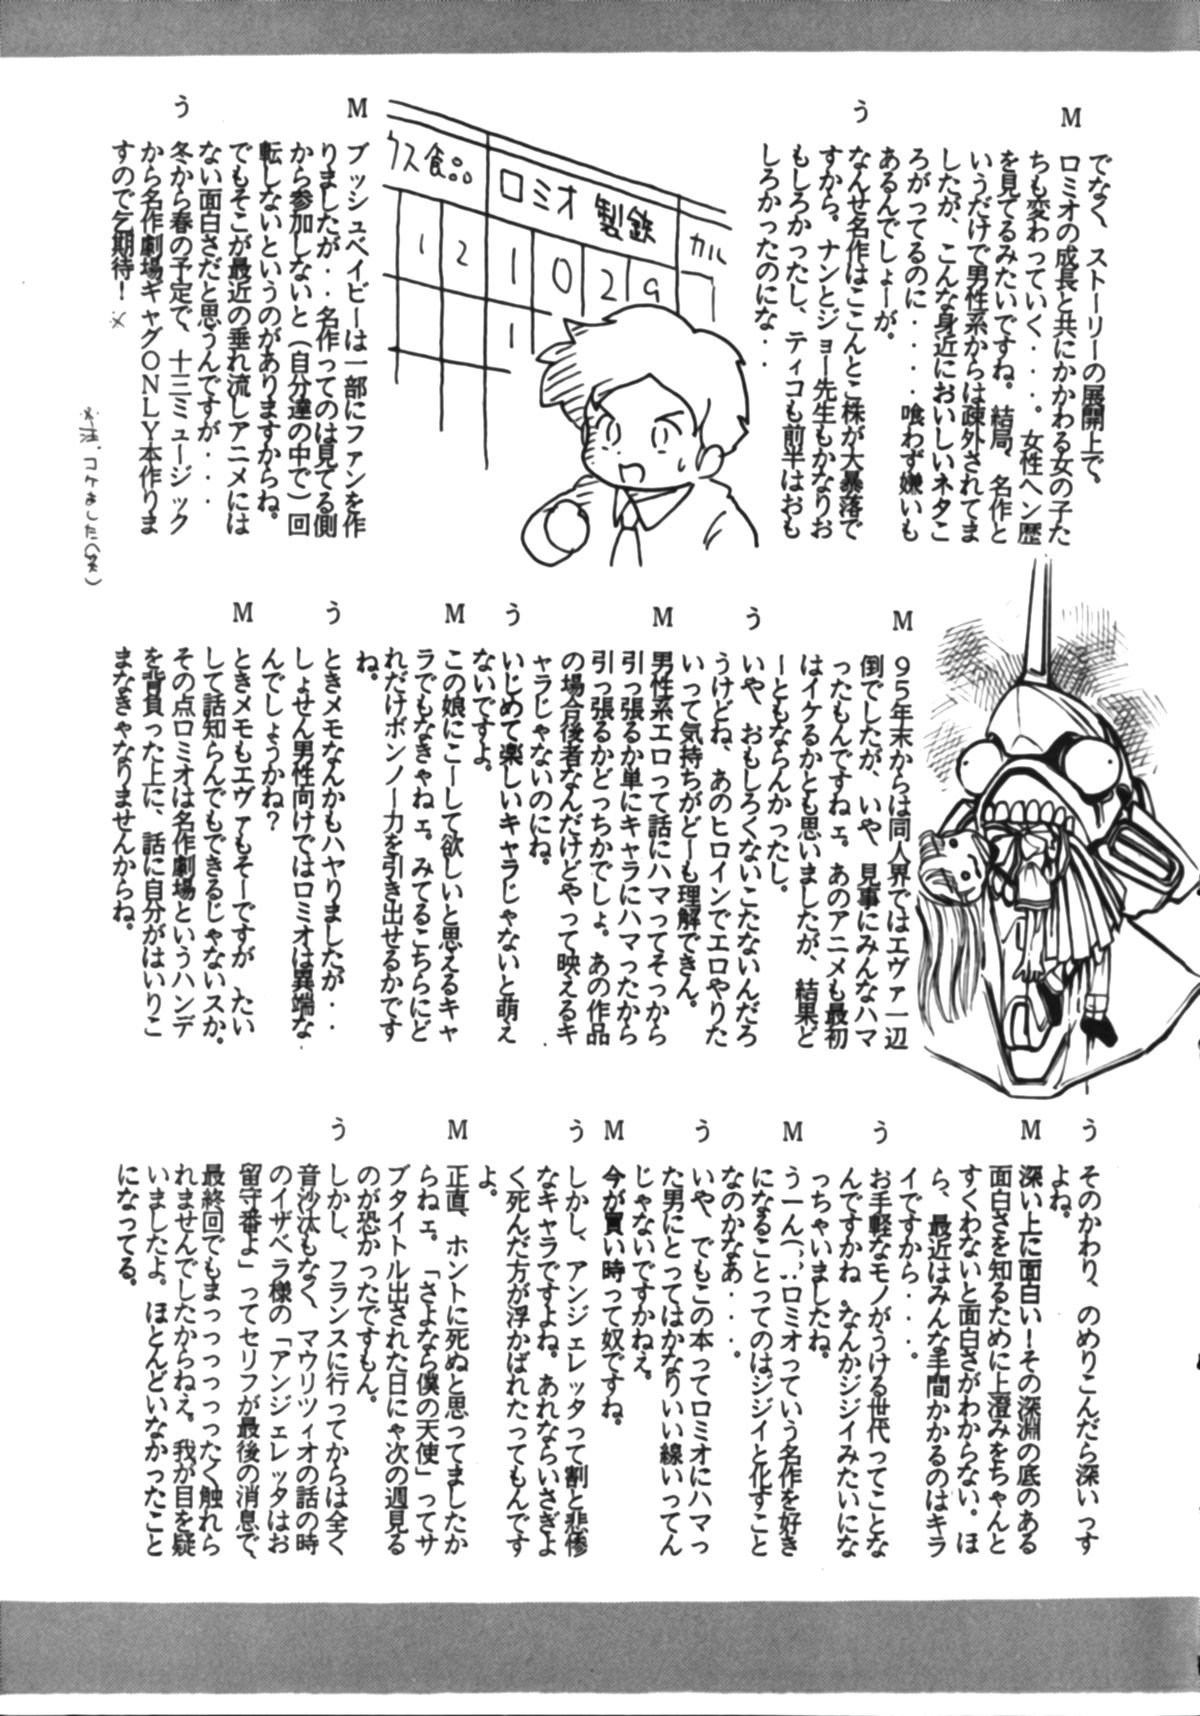 でなく、ストーリーの展開上で。
M
ロミオの成長と共にかかわる女の子た
ちも変わっていく・・・。女性ヘン歴
を見てるみたいですね。結局、名作と
いうだけで男性系からは疎外されてま
したが、こんな身近においしいネタこ
ろがってるのに・・・・・喰わず嫌いも
あるんでしょーが。
う
なんせ名作はここんとこ株が大暴落で
すから。ナンとジョー先生もかなりお
もしろかったし、ティコも前半はおも
しろかったのにな・・
クス食品
ロミオ製鉄
カル
12
1029
1
M
ブッシュベイビーは一部にファンを作
りましたが・・名作ってのは見てる側
から参加しないと(自分達の中で)回
転しないというのがありますからね。
でもそこが最近の垂れ流しアニメには
ない面白さだと思うんですが・・・
う
冬から春の予定で、十三ミュージック
から名作劇場ギャグONLY本作りま
すので乞期待！※
コケました(笑)
M
95年末からは同人界ではエヴァ一辺
倒でしたが、いや、見事にみんなハマ
ったもんですねェ。あのアニメも最初
はイケるかとも思いましたが、結果ど
ーともならんかったし。
う
いや、おもしろくないこたないんだろ
うけどね、あのヒロインでエロやりた
いって気持ちがどーも理解できん。
M
男性系エロって話にハマってそっから
引っ張るか単にキャラにハマったから
引っ張るかどっちかでしょ。あの作品
の場合後者なんだけどやって映えるキ
ャラじゃないのにね。
う
いじめて楽しいキャラじゃないと萌え
ないですよ。
M
この娘にこーして欲しいと思えるキャ
ラでもなきゃねェ。みてるこちらにど
れだけボンノー力を引き出せるかです
ね。
う
ときメモなんかもハヤりましたが・・
しょせん男性向けではロミオは異端な
んでしょうかね？
M
ときメモもエヴァもそーですが、たい
して話知らんでもできるじゃないスか。
その点ロミオは名作劇場というハンデ
を背負った上に、話に自分がはいりこ
まなきゃなりませんからね。
う
そのかわり、のめりこんだら深いっす
よね。
M
深い上に面白い！その深淵の底のある
面白さを知るために上澄みをちゃんと
すくわないと面白さがわからない。ほ
ら、最近はみんな手間かかるのはキラ
イですから・・・。
う
お手軽なモノがうける世代ってことな
んですかね。なんかジジイみたいにな
っちゃいましたね。
M
うーん(‥;ロミオっていう名作を好き
になることってのはジジイと化すこと
なのかなあ・・・。
う
いや、でもこの本ってロミオにハマっ
た男にとってはかなりいい線いってん
じゃないですかねぇ。
M
今が買い時って奴ですね。
う
しかし、アンジェレッタって割と悲惨
なキャラですよね。あれならいさぎよ
く死んだ方が浮かばれたってもんです
よ。
M
正直、ホントに死ぬと思ってましたか
らねェ。「さよなら僕の天使」ってサ
ブタイトル出された日にゃ次の週見る
のが恐かったですもん。
う
しかし、フランスに行ってからは全く
音沙汰もなく、マウリツィオの話の時
のイザベラ様の「アンジェレッタはお
留守番よ」ってセリフが最後の消息で、
最終回でもまっっっっっったく触れら
れませんでしたからねえ。我が目を疑
いましたよ。ほとんどいなかったこと
になってる。